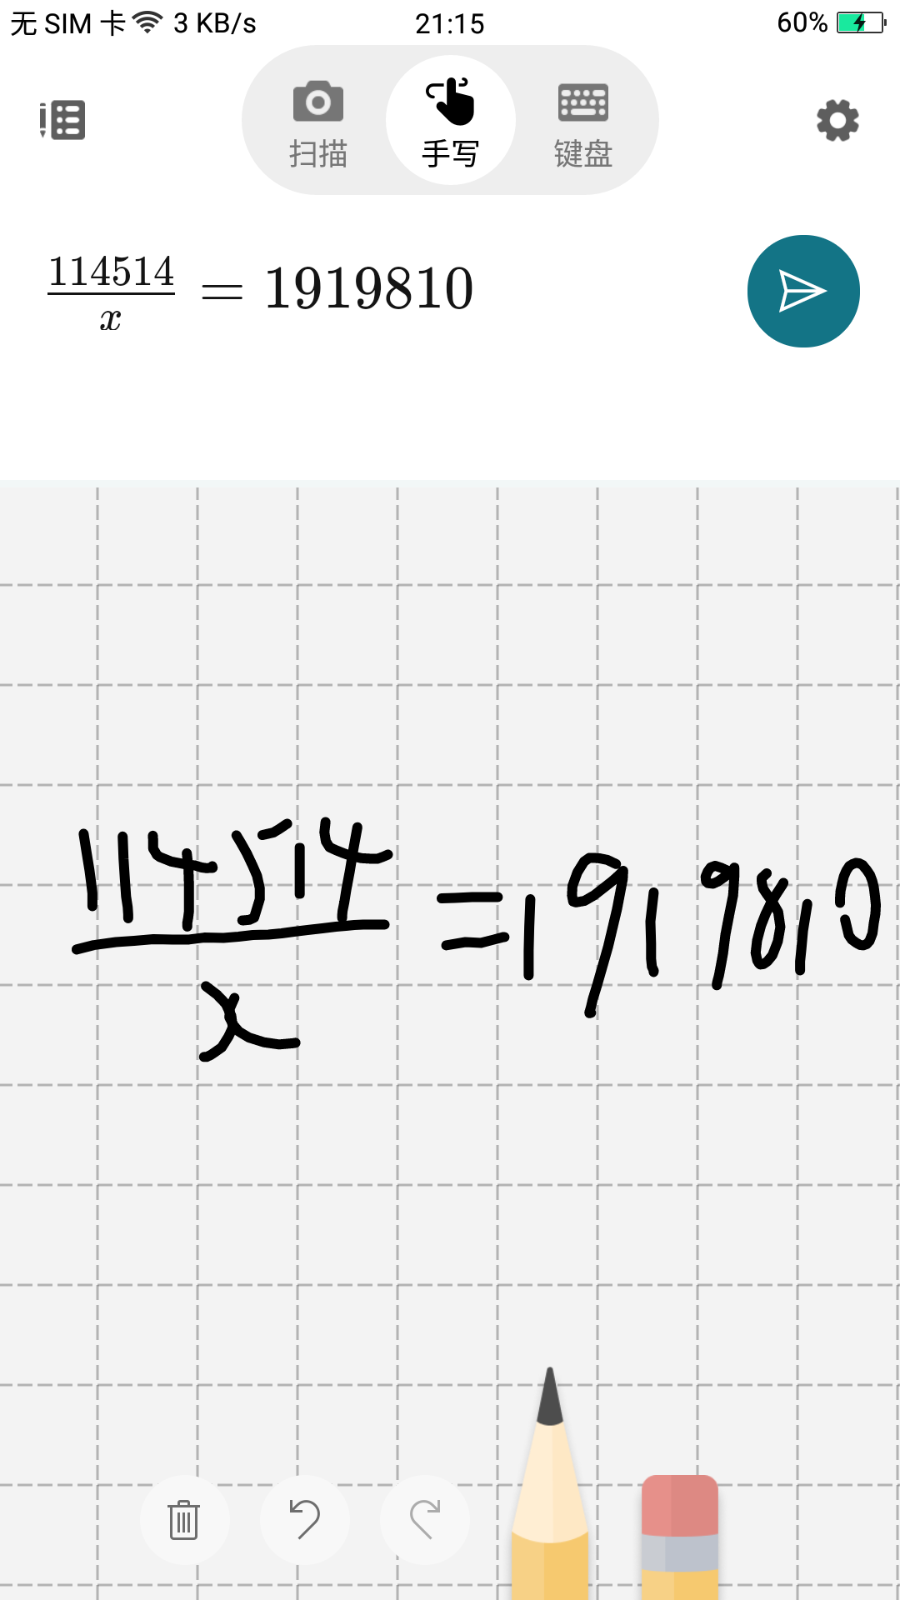 无 SIM 卡 3 KB/s 21:15 60%
扫描 手写 键盘
114514/x = 1919810
114514/x = 1919810